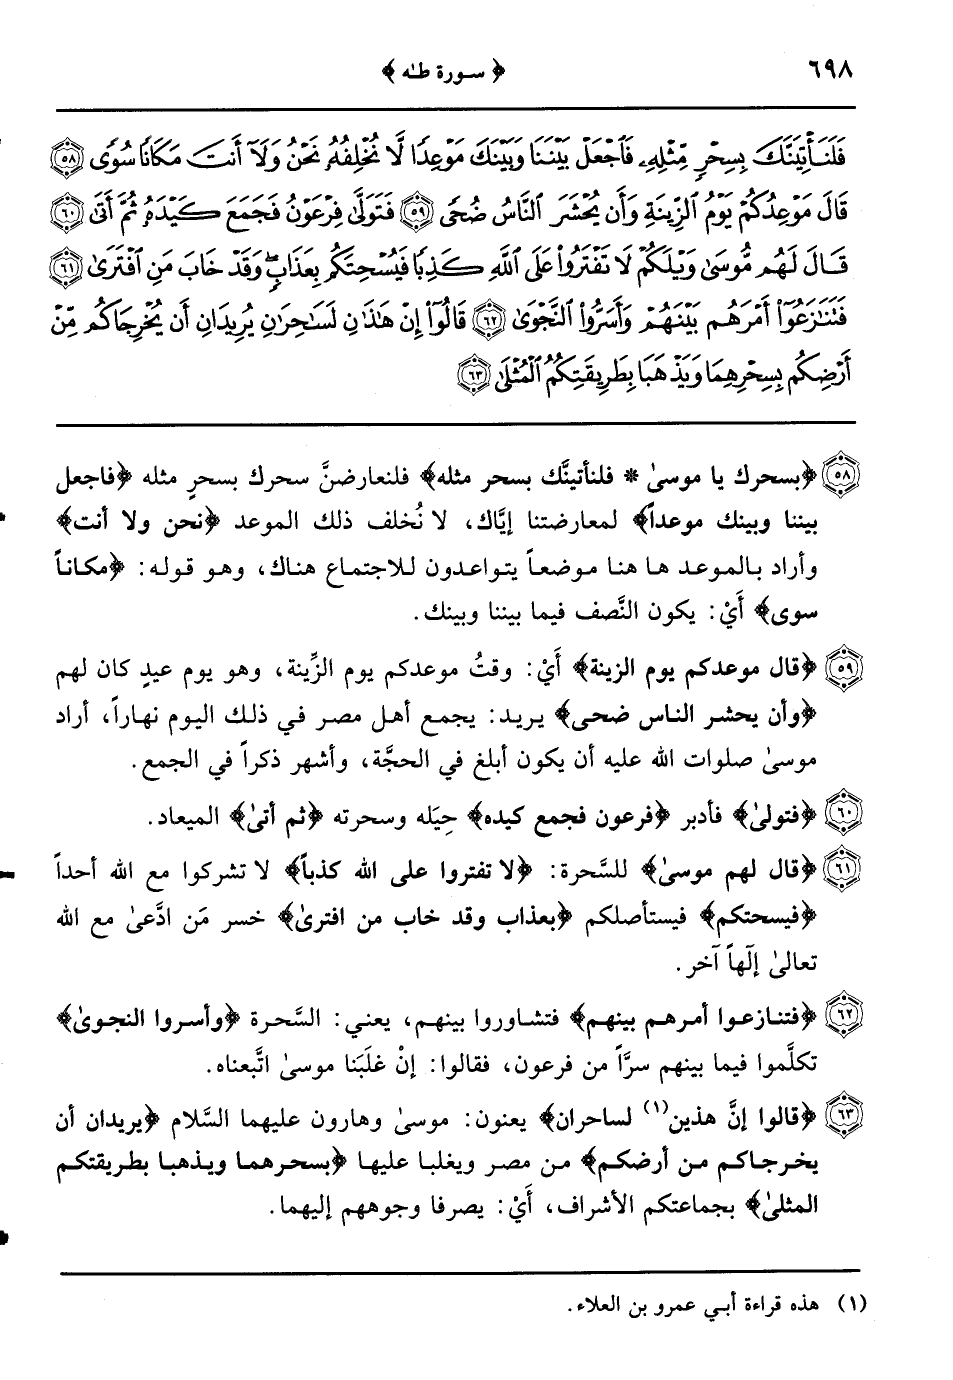 ٦٩٨
﴿ سورة طه ﴾
فَلَنَأْتِيَنَّكَ بِسِحْرٍ مِّثْلِهِۦ فَٱجْعَلْ بَيْنَنَا وَبَيْنَكَ مَوْعِدًا لَّا نُخْلِفُهُۥ نَحْنُ وَلَآ أَنتَ مَكَانًا سُوًى ٥٨
قَالَ مَوْعِدُكُمْ يَوْمُ ٱلزِّينَةِ وَأَن يُحْشَرَ ٱلنَّاسُ ضُحًى ٥٩ فَتَوَلَّىٰ فِرْعَوْنُ فَجَمَعَ كَيْدَهُۥ ثُمَّ أَتَىٰ ٦٠
قَالَ لَهُم مُّوسَىٰ وَيْلَكُمْ لَا تَفْتَرُوا۟ عَلَى ٱللَّهِ كَذِبًا فَيُسْحِتَكُم بِعَذَابٍ وَقَدْ خَابَ مَنِ ٱفْتَرَىٰ ٦١
فَتَنَٰزَعُوٓا۟ أَمْرَهُم بَيْنَهُمْ وَأَسَرُّوا۟ ٱلنَّجْوَىٰ ٦٢ قَالُوٓا۟ إِنْ هَٰذَٰنِ لَسَٰحِرَٰنِ يُرِيدَانِ أَن يُخْرِجَاكُم مِّنْ
أَرْضِكُم بِسِحْرِهِمَا وَيَذْهَبَا بِطَرِيقَتِكُمُ ٱلْمُثْلَىٰ ٦٣
٥٨ ﴿بسحرك يا موسىٰ * فلنأتينَّك بسحر مثله﴾ فلنعارضنَّ سحرك بسحرٍ مثله ﴿فاجعل
بيننا وبينك موعداً﴾ لمعارضتنا إيَّاك، لا نُخلف ذلك الموعد ﴿نحن ولا أنت﴾
وأراد بالموعد ها هنا موضعاً يتواعدون للاجتماع هناك، وهو قوله: ﴿مكاناً
سوى﴾ أَيْ: يكون النَّصف فيما بيننا وبينك.
٥٩ ﴿قال موعدكم يوم الزينة﴾ أَيْ: وقتُ موعدكم يوم الزِّينة، وهو يوم عيدٍ كان لهم
﴿وأن يحشر الناس ضحى﴾ يريد: يجمع أهل مصر في ذلك اليوم نهاراً، أراد
موسىٰ صلوات الله عليه أن يكون أبلغ في الحجَّة، وأشهر ذكراً في الجمع.
٦٠ ﴿فتولىٰ﴾ فأدبر ﴿فرعون فجمع كيده﴾ حِيَله وسحرته ﴿ثم أتىٰ﴾ الميعاد.
٦١ ﴿قال لهم موسىٰ﴾ للسَّحرة: ﴿لا تفتروا على الله كذباً﴾ لا تشركوا مع الله أحداً
﴿فيسحتكم﴾ فيستأصلكم ﴿بعذاب وقد خاب من افترىٰ﴾ خسر مَن ادَّعىٰ مع الله
تعالىٰ إلٰهاً آخر.
٦٢ ﴿فتنازعوا أمرهم بينهم﴾ فتشاوروا بينهم، يعني: السَّحرة ﴿وأسروا النجوىٰ﴾
تكلَّموا فيما بينهم سرَّاً من فرعون، فقالوا: إنْ غلَبَنا موسىٰ اتَّبعناه.
٦٣ ﴿قالوا إنَّ هذين(١) لساحران﴾ يعنون: موسىٰ وهارون عليهما السَّلام ﴿يريدان أن
يخرجاكم من أرضكم﴾ من مصر ويغلبا عليها ﴿بسحرهما ويذهبا بطريقتكم
المثلىٰ﴾ بجماعتكم الأشراف، أَيْ: يصرفا وجوههم إليهما.
(١) هذه قراءة أبي عمرو بن العلاء.